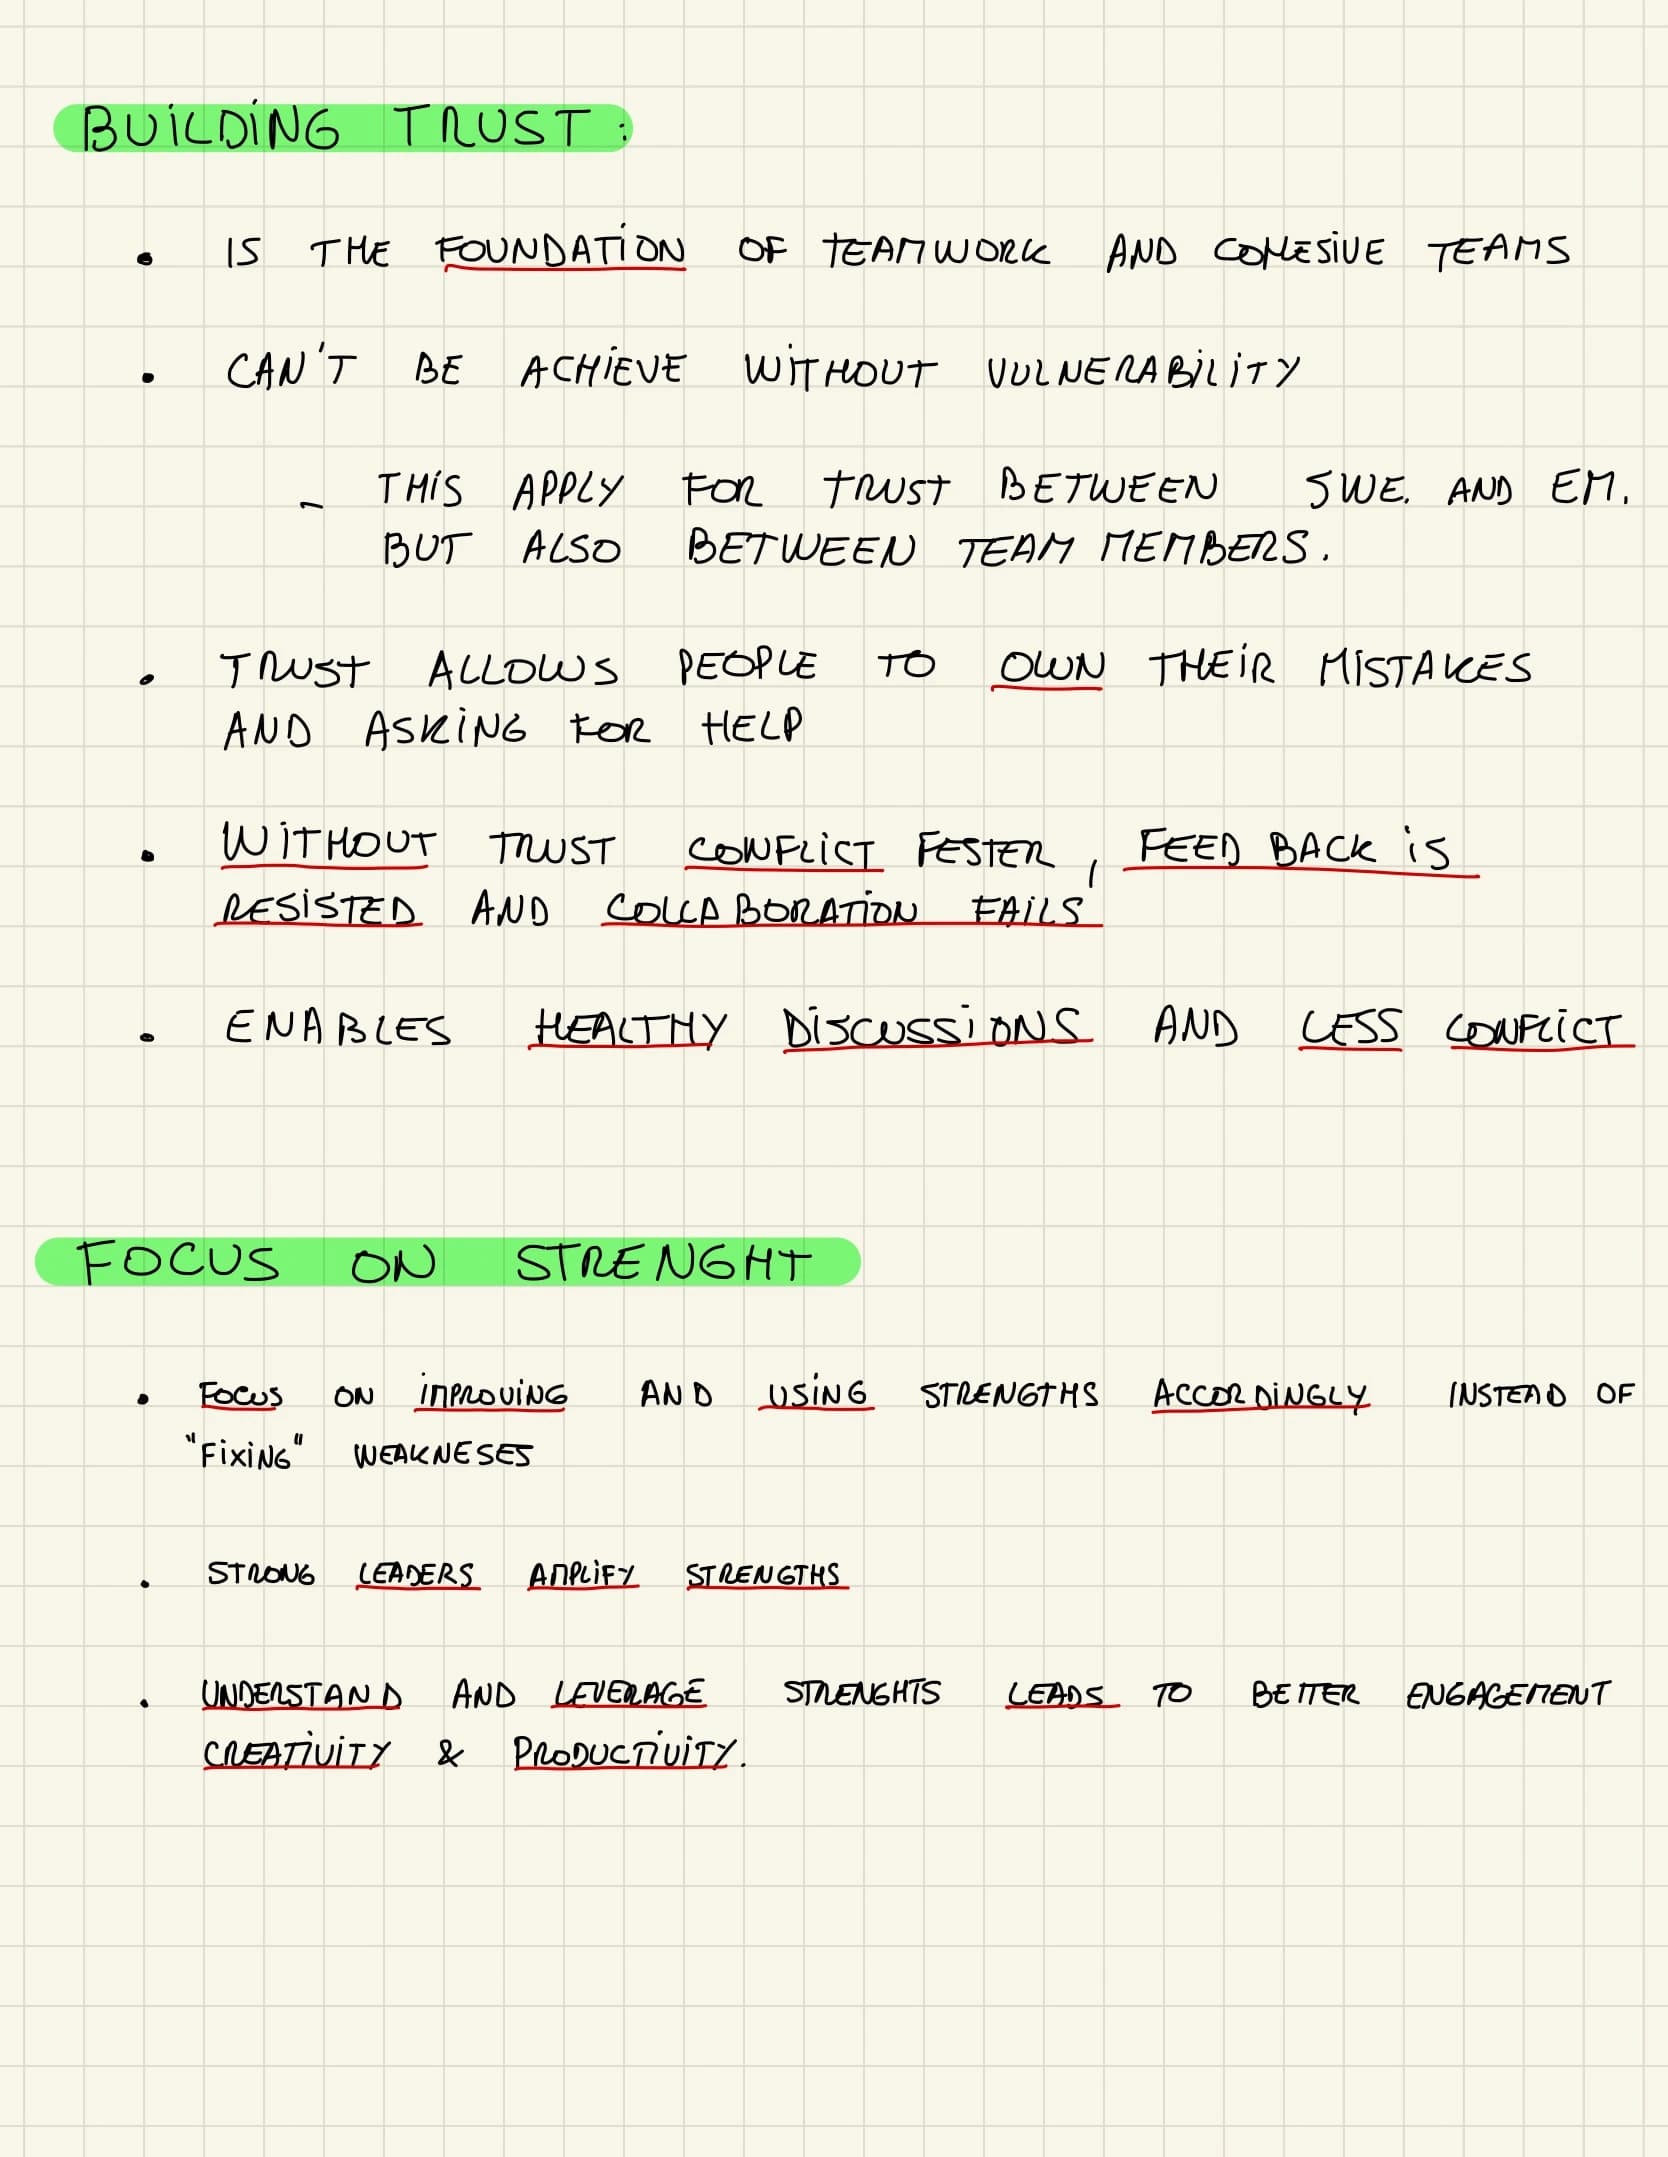 BUILDING TRUST:
• IS THE FOUNDATION OF TEAMWORK AND COHESIVE TEAMS
• CAN'T BE ACHIEVE WITHOUT VULNERABILITY
- THIS APPLY FOR TRUST BETWEEN SWE. AND EM.
BUT ALSO BETWEEN TEAM MEMBERS.
• TRUST ALLOWS PEOPLE TO OWN THEIR MISTAKES
AND ASKING FOR HELP
• WITHOUT TRUST CONFLICT FESTER, FEED BACK IS
RESISTED AND COLLABORATION FAILS
• ENABLES HEALTHY DISCUSSIONS AND LESS CONFLICT
FOCUS ON STRENGHT
• FOCUS ON IMPROVING AND USING STRENGTHS ACCORDINGLY INSTEAD OF
"FIXING" WEAKNESES
• STRONG LEADERS AMPLIFY STRENGTHS
• UNDERSTAND AND LEVERAGE STRENGHTS LEADS TO BETTER ENGAGEMENT
CREATIVITY & PRODUCTIVITY.